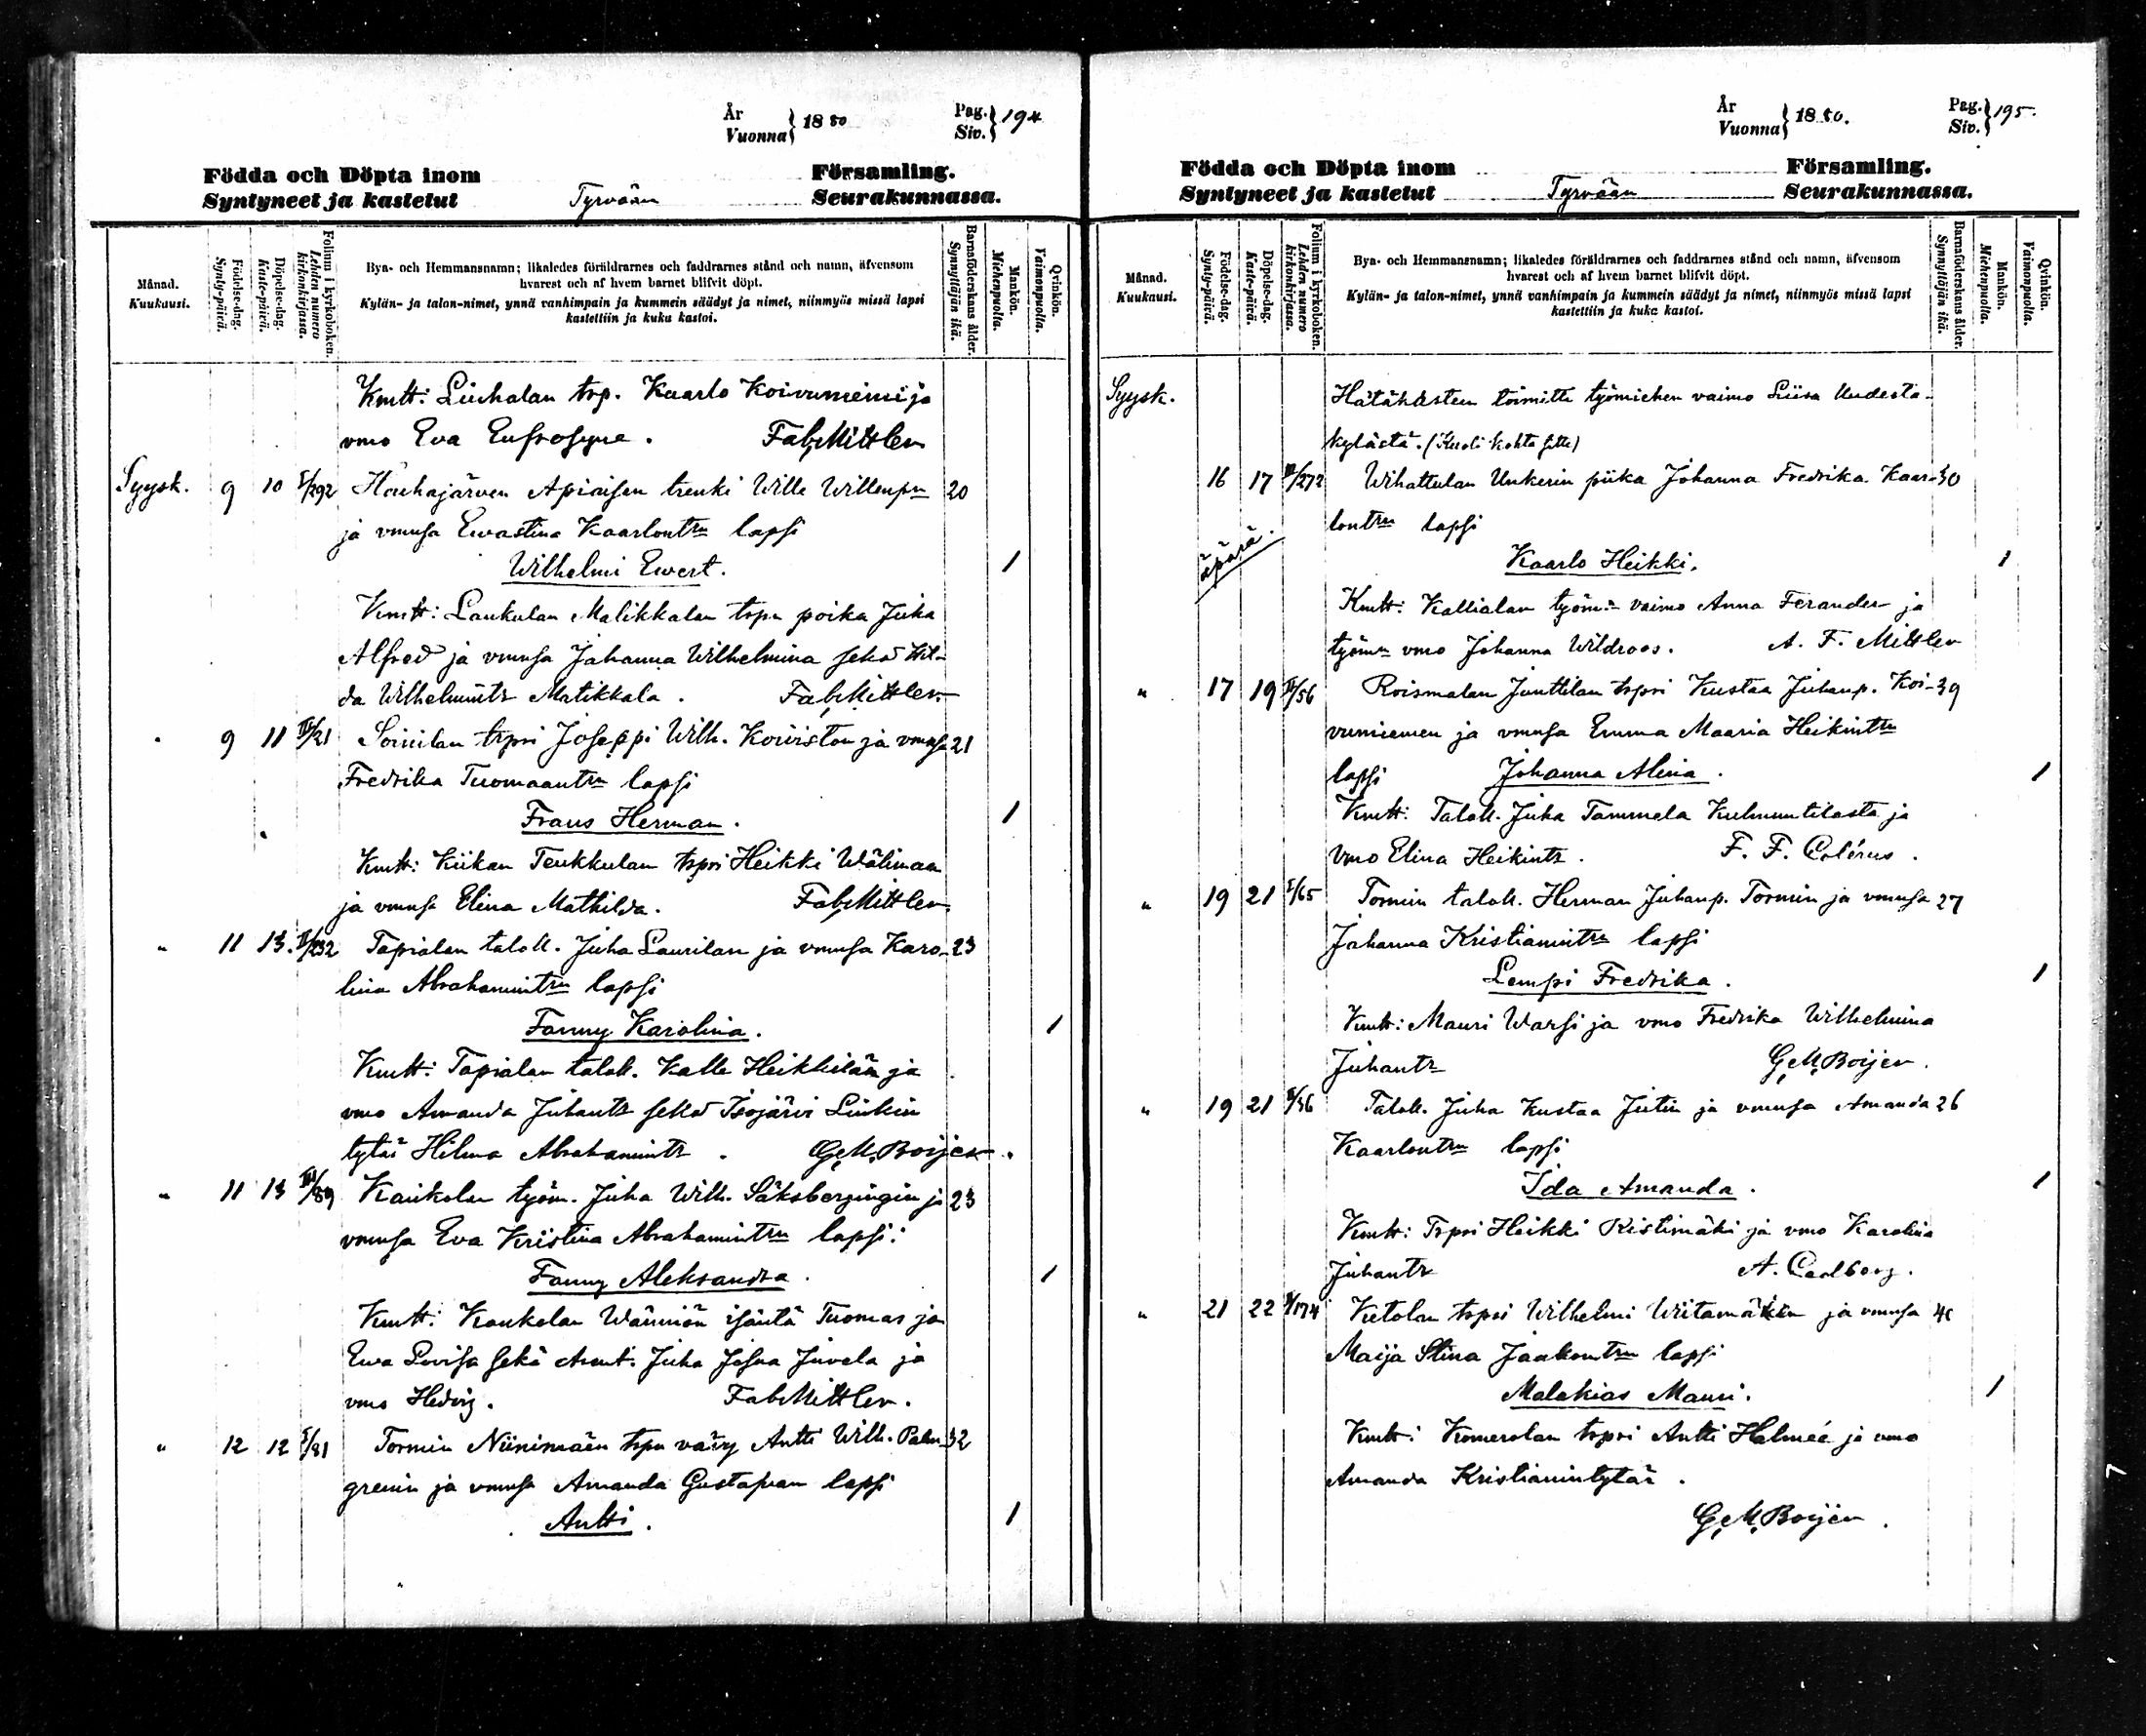 År
Vuonna } 1880
Pag.
Siv. } 194
Födda och Döpta inom Församling.
Syntyneet ja kastetut Tyrvään Seurakunnassa.
Månad.
Kuukausi.
Födelse-dag.
Synty-päivä.
Döpelse-dag.
Kaste-päivä.
Folium i kyrkoboken.
Lehden numero kirkonkirjassa.
Bya- och Hemmansnamn; likaledes föräldrarnes och faddrarnes stånd och namn, äfvensom
hvarest och af hvem barnet blifvit döpt.
Kylän- ja talon-nimet, ynnä vanhimpain ja kummein säädyt ja nimet, niinmyös missä lapsi
kastettiin ja kuka kastoi.
Barnaföderskans ålder.
Synnyttäjän ikä.
Mankön.
Miehenpuolta.
Qvinkön.
Vaimonpuolta.
Kmtt: Liuhalan trp. Kaarlo Koivuniemi ja
vmo Eva Eufrosyne. Fab. Mittler
Syysk. 9 10 I/292 Houhajärven Apiaisen trenki Wille Willenpn 20
ja vmnsa Ewastina Kaarlontrn lapsi
Wilhelmi Ewert. 1
Kmtt: Laukulan Matikkalan trpn poika Juha
Alfred ja vmnsa Johanna Wilhelmina sekä Hil-
da Wilhelmintr Matikkala. Fab. Mittler
" 9 11 II/21 Soinilan trpri Joseppi Wilh. Koiviston ja vmnsa 21
Fredrika Tuomaantrn lapsi
Frans Herman. 1
Kmtt: Kiikan Teukkulan trpri Heikki Wälimaa
ja vmnsa Elina Mathilda. Fab. Mittler.
" 11 13. II/232 Tapialan taloll. Juha Laurilan ja vmnsa Karo- 23
lina Abrahamintrn lapsi
Fanny Karolina. 1
Kmtt: Tapialan taloll. Kalle Heikkilän ja
vmo Amanda Juhantr sekä Isojärvi Liukin
tytär Hilma Abrahamintr. G. M. Boijer.
" 11 13 III/89 Kaukolan työm. Juha Wilh. Säksbergingin ja 23
vmnsa Eva Kristina Abrahamintrn lapsi:
Fanny Aleksandra. 1
Kmtt: Kaukolan Wänniön isäntä Tuomas ja
Ewa Lovisa sekä Juha Josua Juvela ja
vmo Hedvig. Fab. Mittler.
" 12 12 I/81 Tormin Niinimäen trpn vävy Antti Wilh. Palm- 32
grenin ja vmnsa Amanda Gustafvan lapsi
Antti. 1
År
Vuonna } 1880.
Pag.
Siv. } 195.
Födda och Döpta inom Församling.
Syntyneet ja kastetut Tyrvään Seurakunnassa.
Månad.
Kuukausi.
Födelse-dag.
Synty-päivä.
Döpelse-dag.
Kaste-päivä.
Folium i kyrkoboken.
Lehden numero kirkonkirjassa.
Bya- och Hemmansnamn; likaledes föräldrarnes och faddrarnes stånd och namn, äfvensom
hvarest och af hvem barnet blifvit döpt.
Kylän- ja talon-nimet, ynnä vanhimpain ja kummein säädyt ja nimet, niinmyös missä lapsi
kastettiin ja kuka kastoi.
Barnaföderskans ålder.
Synnyttäjän ikä.
Mankön.
Miehenpuolta.
Qvinkön.
Vaimonpuolta.
Syysk. Hätäkasteen toimitti työmiehen vaimo Liisa Uudesta-
kylästä. (Kuoli kohta sitte)
16 17 II/272 Wihattulan Unkerin piika Johanna Fredrika Kaar- 30
lontrn lapsi
äpärä.
Kaarlo Heikki. 1
Kmtt: Kallialan työmn vaimo Anna Ferander ja
työmn vmo Johanna Wildroos. A. F. Mittler
" 17 19 II/56 Roismalan Junttilan trpri Kustaa Juhanp. Koi- 39
vuniemen ja vmnsa Emma Maaria Heikintrn
lapsi Johanna Alina. 1
Kmtt: Taloll. Juha Tammela Kulmuntilasta ja
Vmo Elina Heikintr. F. F. Colérus.
" 19 21 I/65 Tormin taloll. Herman Juhanp. Tormin ja vmnsa 27
Johanna Kristianintrn lapsi
Lempi Fredrika. 1
Kmtt: Mauri Warsi ja vmo Fredrika Wilhelmina
Juhantr G. M. Boijer.
" 19 21 /36 Taloll. Juha Kustaa Jutin ja vmnsa Amanda 26
Kaarlontrn lapsi
Ida Amanda. 1
Kmtt: Trpri Heikki Ristimäki ja vmo Karolina
Juhantr A. Carlborg.
" 21 22 /174 Ketolan trpri Wilhelmi Wiitamäkin ja vmnsa
Maija Stina Jaakontrn lapsi
Malakias Mauri. 1
Kmtt: Komerolan trpri Antti Halmeé ja vmo
Amanda Kristianintytär.
G. M. Boijer.